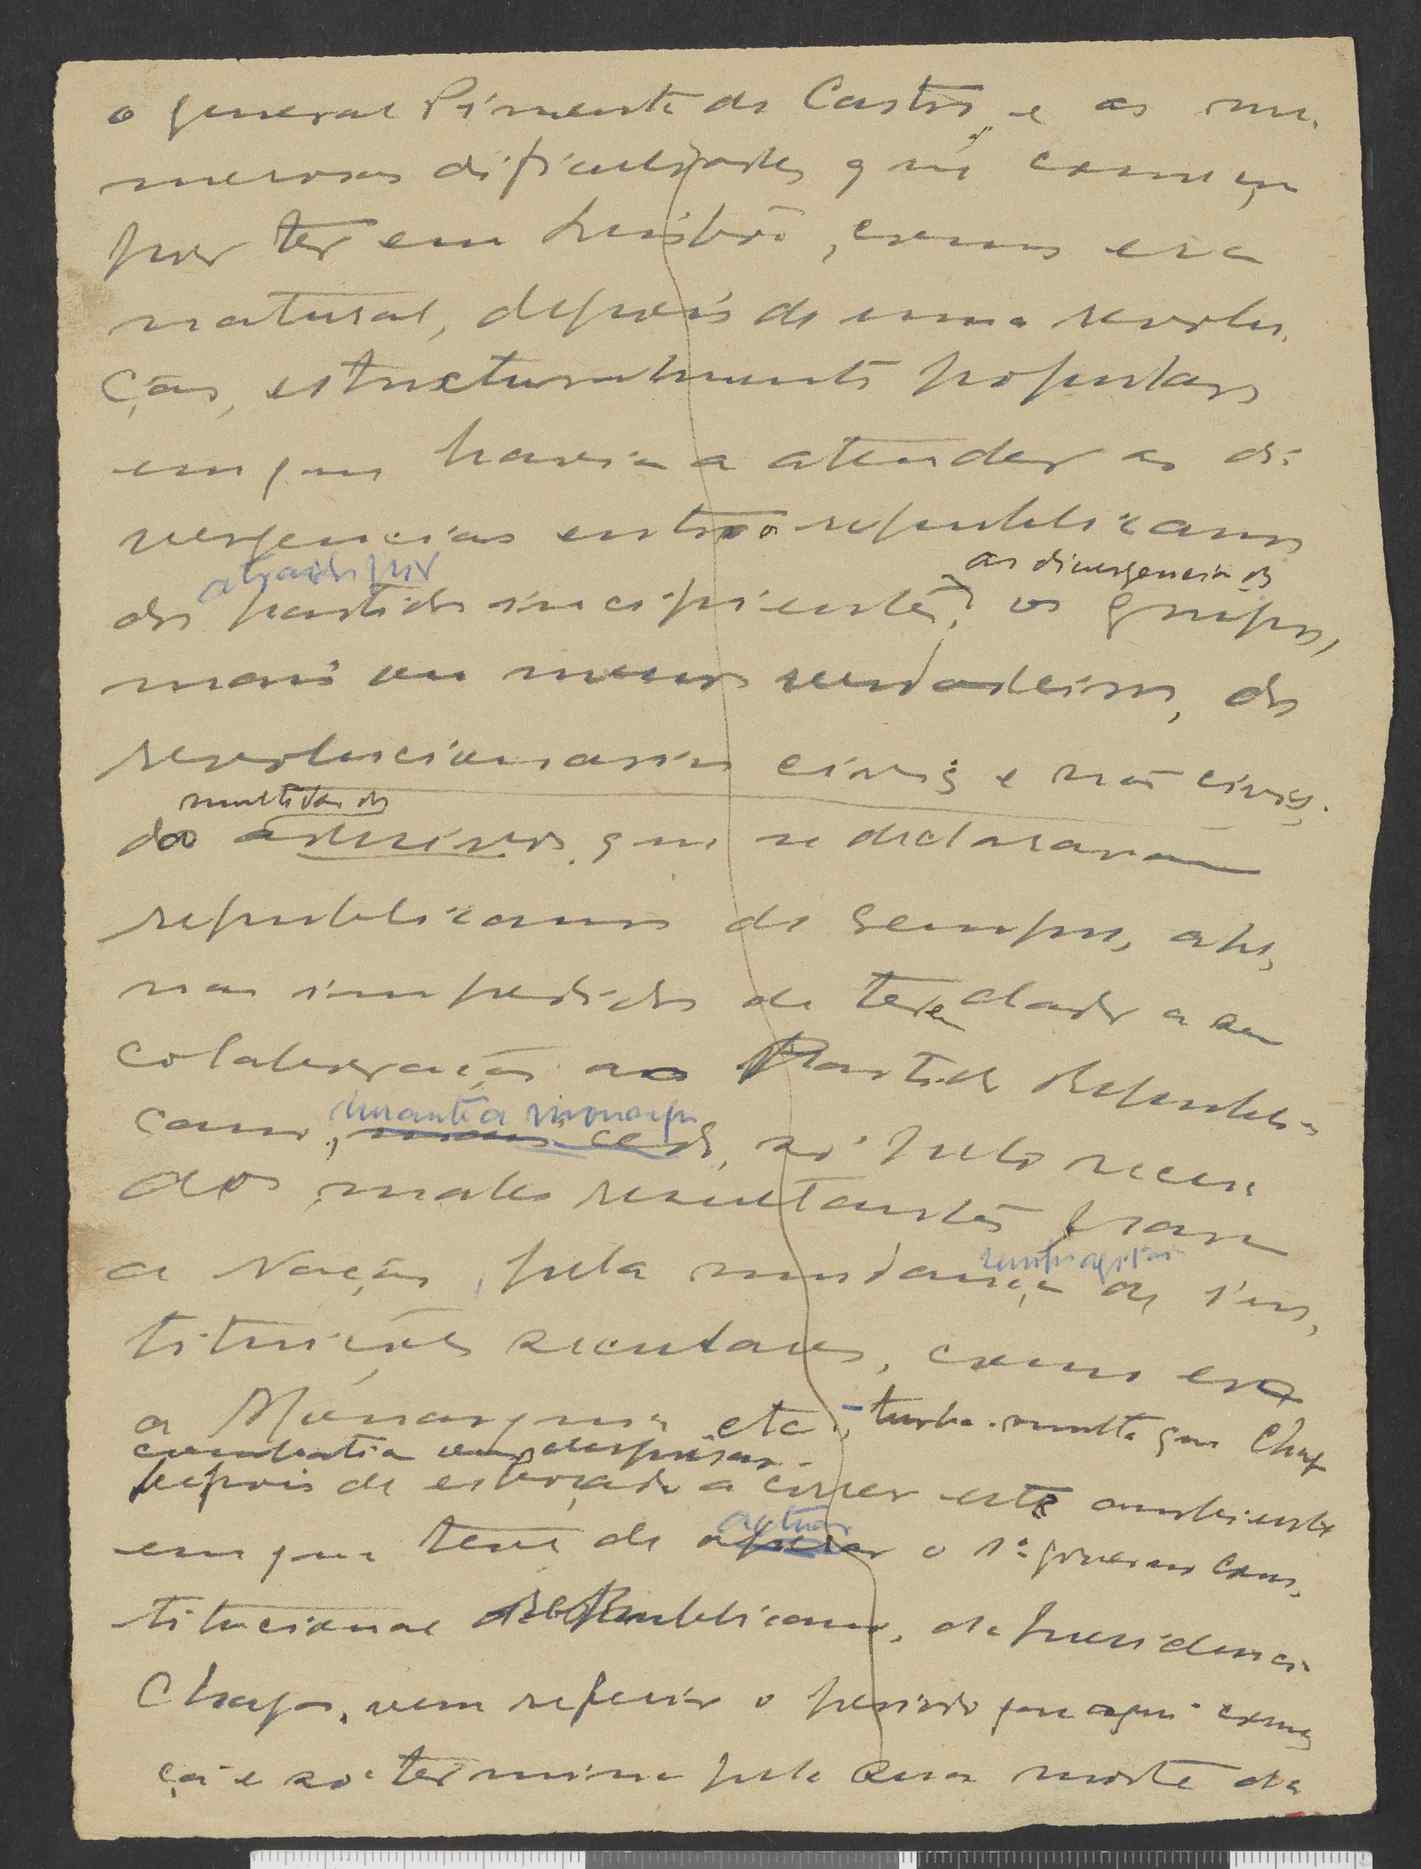 o general Pimenta de Castro, e as nu-
merosas dificuldades que começa
por ter em Lisbôa, como era
natural, depois de uma revolu-
ção, estructuralmente popular
em que havia a atender as di-
vergencias entre os republicanos
as divergencias dos
dos partidos incipientes, os grupos,
mais ou menos verdadeiros, dos
revolucionarios civis e não civis,
multidão dos
do adesivos, que se declaravam
republicanos de sempre, ape-
nas impedidos de terem dado a sua
colaboração ao Partido Republi-
durante a monarq
cano, mais cedo, só pelo receio
dos males resultantes para
a Nação, pela mudança de ins-
tituições seculares, como era
a Monarquia etc., turba-multa que Chagas
combatia ou desprisava.
Depois de esboçado a correr este ambiente
actuar
em que teve de operar o 1º governo cons-
titucional Republicano, da presidencia
Chagas, vem referir o periodo que aqui come-
ça e só termina pela sua morte da